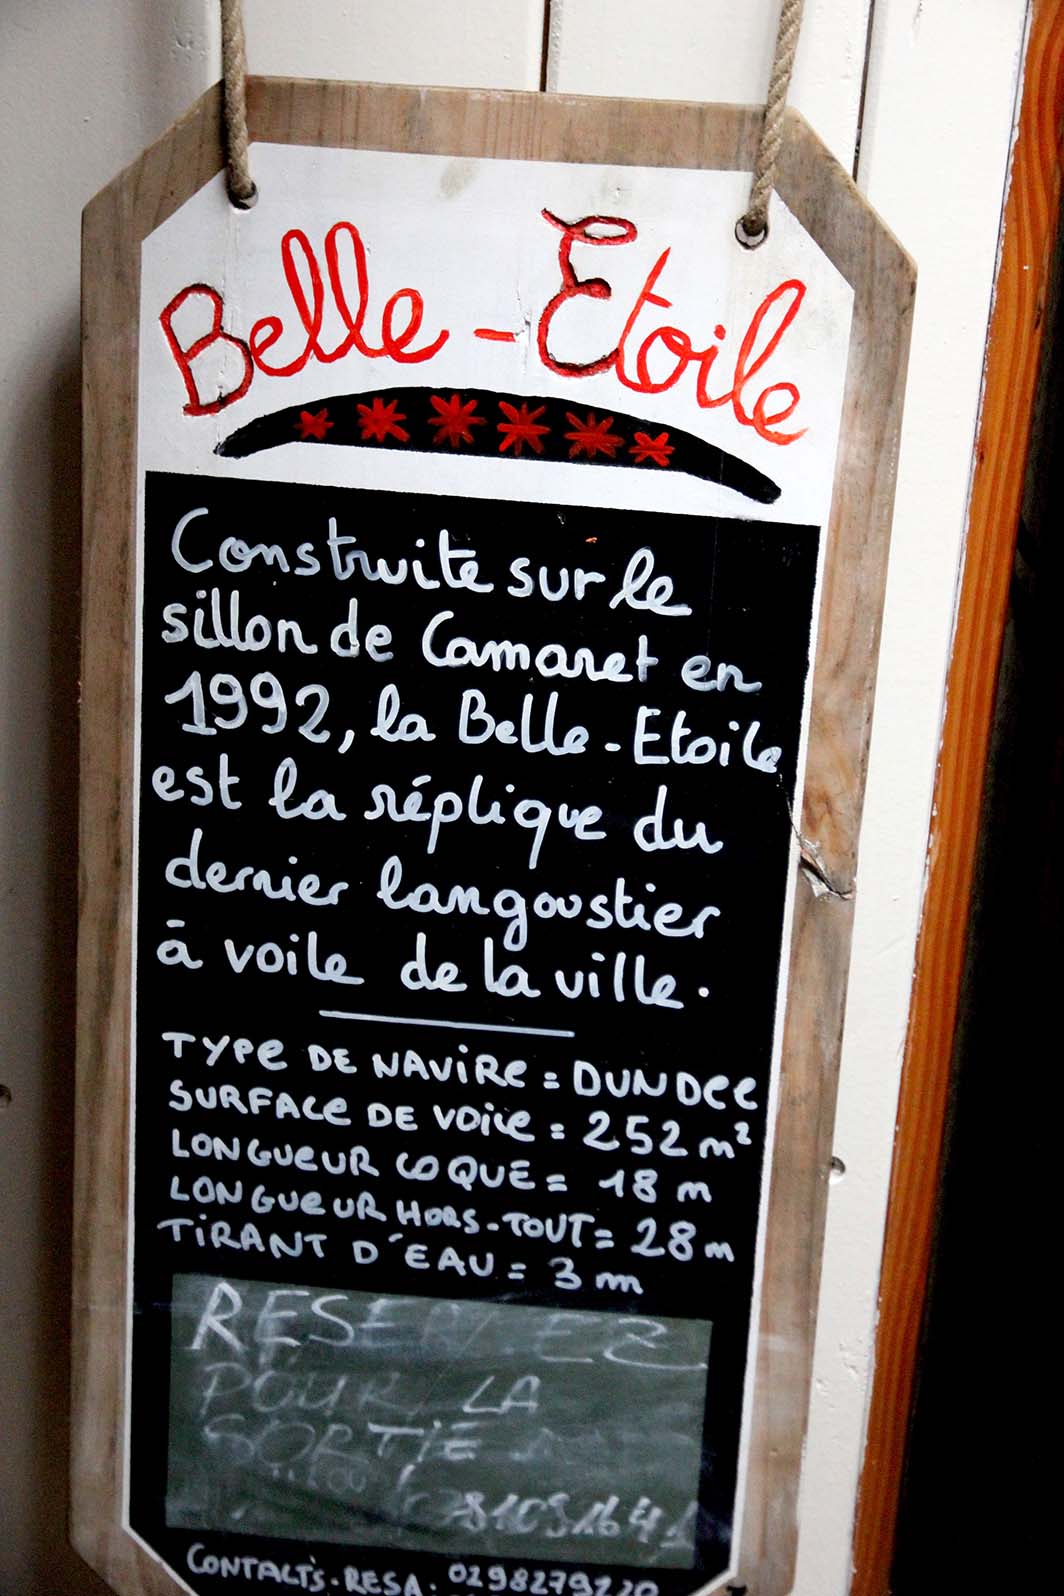 Belle-Etoile
Construite sur le
sillon de Camaret en
1992, la Belle-Etoile
est la réplique du
dernier langoustier
à voile de la ville.
TYPE DE NAVIRE = DUNDEE
SURFACE DE VOILE = 252 m²
LONGUEUR COQUE = 18 m
LONGUEUR HORS-TOUT = 28 m
TIRANT D'EAU = 3 m
RESERVEZ
POUR LA
SORTIE
CONTACTS-RESA. 0298279220